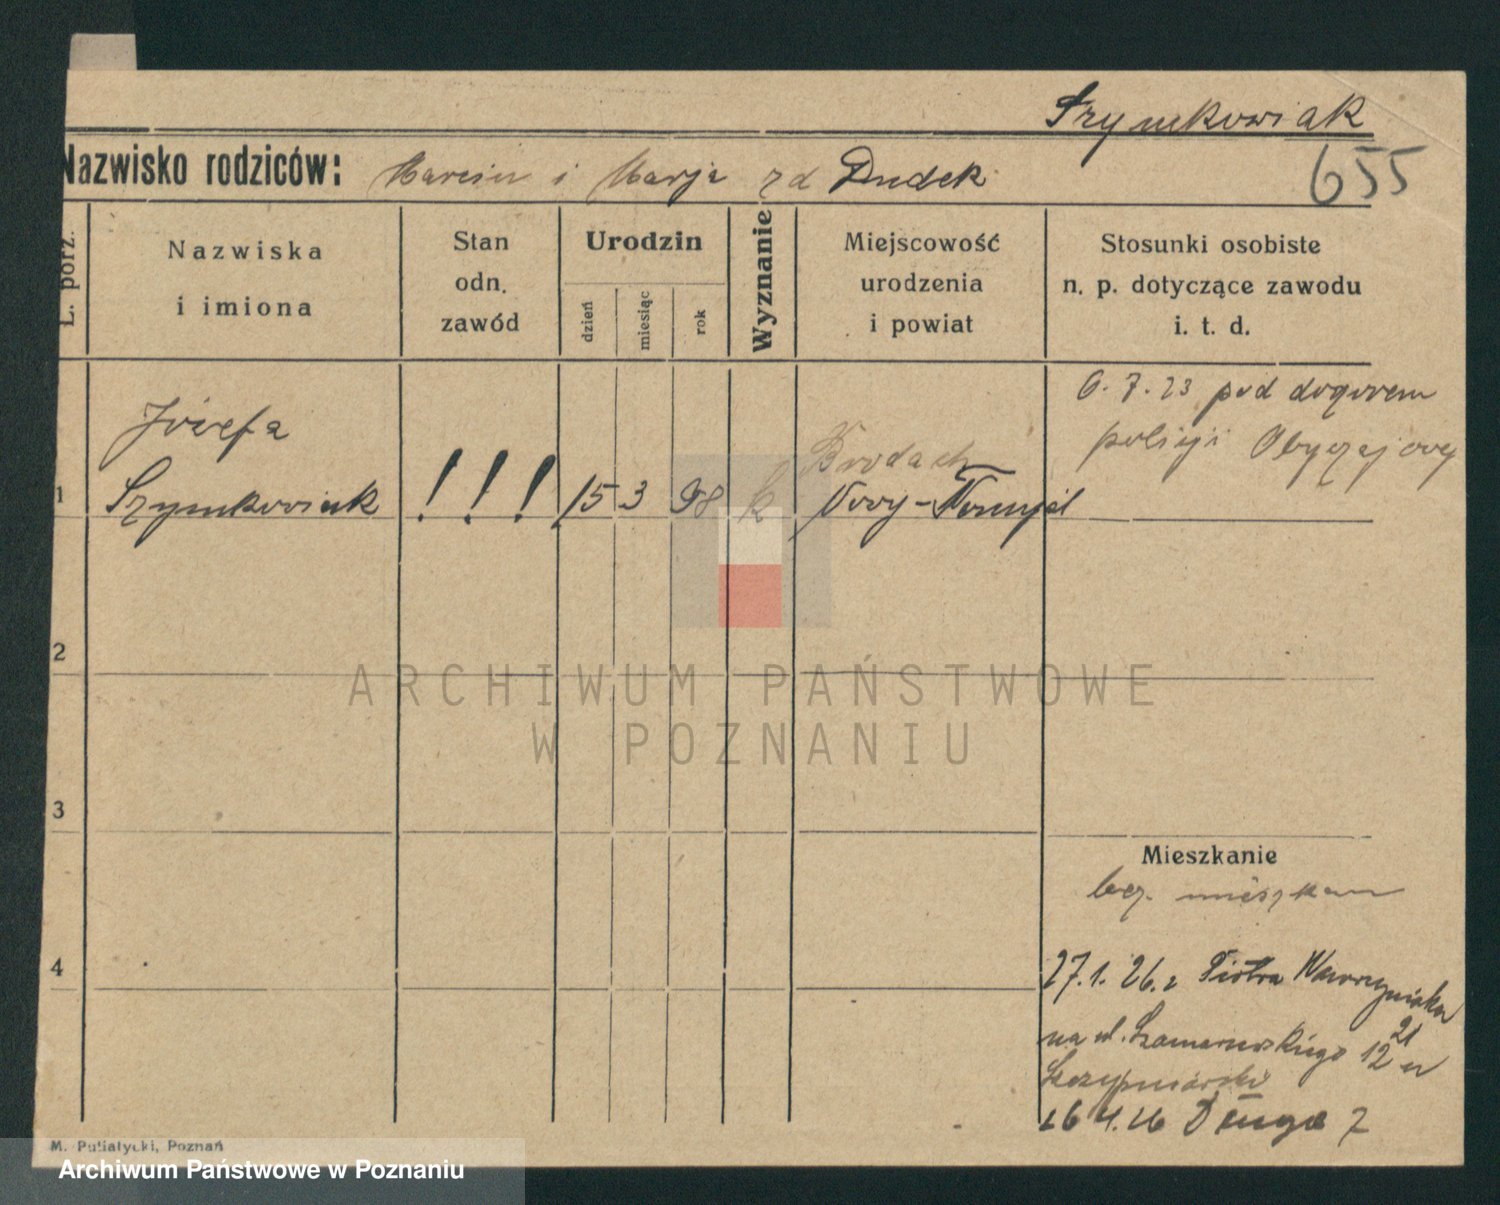 Szymkowiak
Nazwisko rodziców: Marcin i Marja zd Dudek
655
L. porz.
Nazwiska
i imiona
Stan
odn.
zawód
Urodzin
dzień
miesiąc
rok
Wyznanie
Miejscowość
urodzenia
i powiat
Stosunki osobiste
n. p. dotyczące zawodu
i. t. d.
6.7.23 pod dozorem
policji Obyczajowej
1
Józefa
Szymkowiak
! ! !
15 3 98 k
Brodach
Nowy-Tomyśl
2
ARCHIWUM PAŃSTWOWE
W POZNANIU
3
Mieszkanie
bez. mieszkan
4
27.1.26. z Piotra Wawrzyniaka
na ul. Szamarzewskiego 12 21 u
26 4.26 Długa 7
M. Putiatycki, Poznań
Archiwum Państwowe w Poznaniu